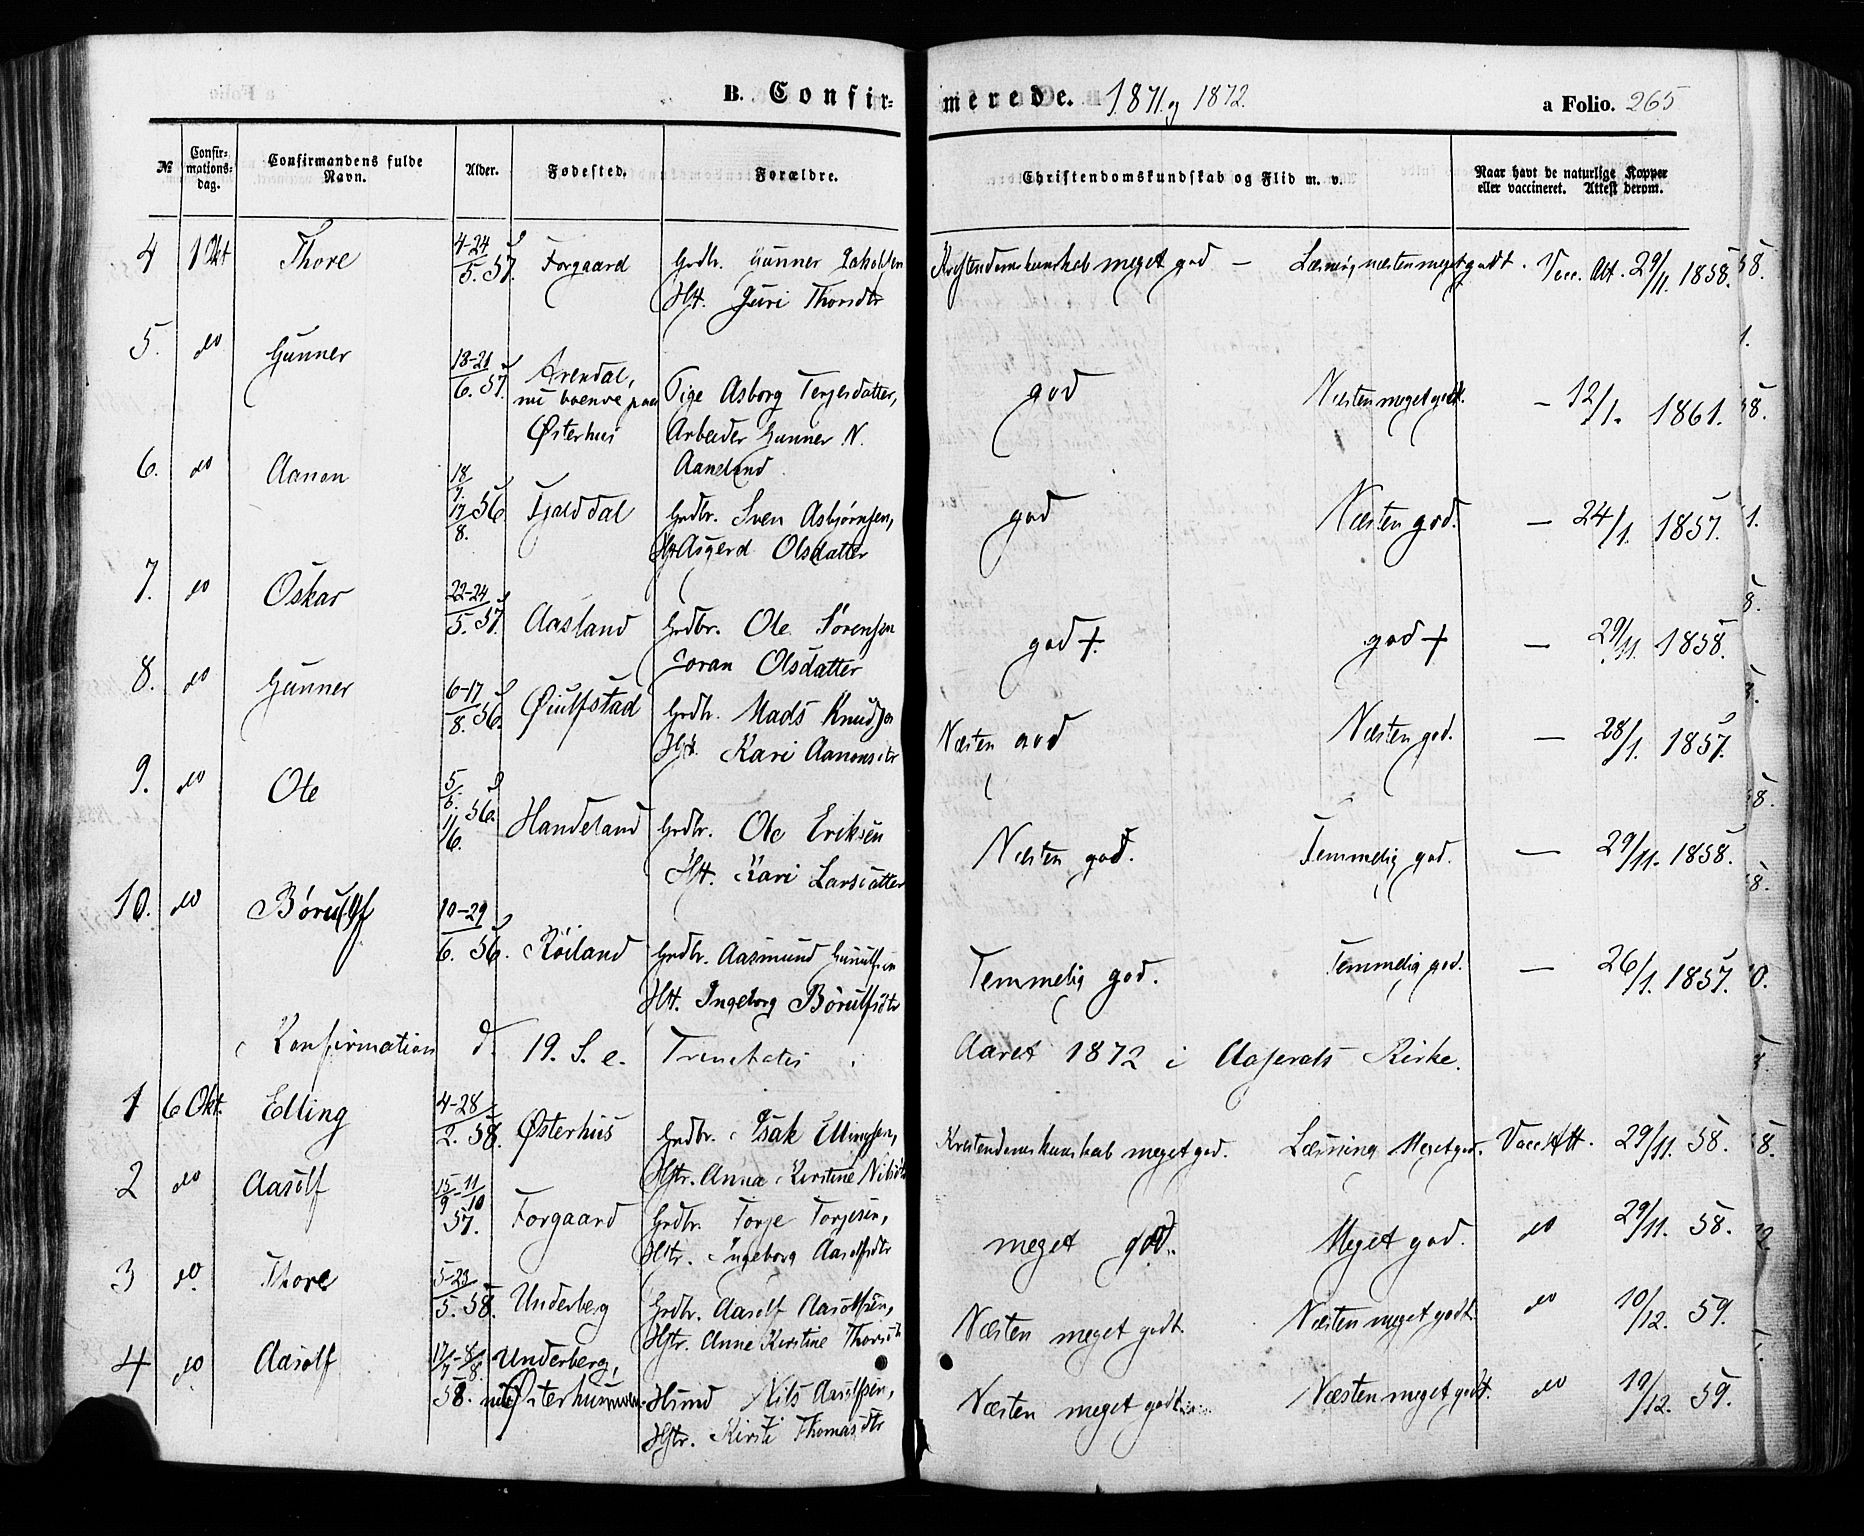 B. Confir-
merede. 1871 og 1872.
a Folio. 265
№
Confir-
mations-
dag.
Confirmandens fulde
Navn.
Alder.
Fødested.
Forældre.
Christendomskundskab og Flid m. v.
Naar havt de naturlige Kopper
eller vaccineret. Attest derom.
4 1 Okt Thore 4-24/5. 57. Forgaard Grdbr. Gunner Jakobsen Kristendomskunskab meget god — Læsning næsten meget godt. Vacc. Att. 29/11. 1858.
Hst. Guri Thorsdtr
5. do Gunner 18-21/6. 57. Arendal, Pige Asborg Terjesdatter, god Næsten meget godt. — 12/1. 1861.
nu boende paa
Østerhus Arbeider Gunner N.
Aaneland
6. do Aanon 18/7. 17/8. 56 Fjalddal Grdbr. Sven Asbjørnsen, god Næsten god. — 24/1. 1857.
Hst Asgerd Olsdatter
7. do Oskar 22-24/5. 57. Aasland Grdbr. Ole Sørensen god +. god + — 29/11. 1858.
Goran Olsdatter
8. do Gunner 6-17/8. 56. Øiulfstad Grdbr. Mads Knudsen Næsten god Næsten god. — 28/1. 1857.
Hst. Kari Aanonsdtr
9. do Ole 5/5. 1/6. 56. Handeland Grdbr. Ole Eriksen Næsten god. Temmelig god. — 29/11. 1858.
Hst. Kari Larsdatter
10. do Børulf 10-29/6. 56. Røiland Grdbr. Aasmund Gunulfsen Temmelig god. Temmelig god. — 26/1. 1857.
Hst. Ingeborg Børulfsdtr
Konfirmation d. 19. S. e. Trinitatis Aaret 1872 i Aaserals Kirke.
1 6 Okt. Elling 4-28/2. 58. Østerhus Grdbr. Isak Ellingsen, Kristendomskunskab meget god. Læsning Meget god. Vacc Att. 29/11. 58.
Hstr. Anna Kirstine Nilsdtr
2 do Aasolf 15/9-11/10 57. Forgaard Grdbr. Torje Torjesen, meget god. Meget god. do 29/11. 58.
Hstr. Ingeborg Aasolfsdtr
3 do. Thore 5-23/5. 58. Underberg Grdbr. Aasolf Aasolfsen, Næsten meget godt. Næsten meget godt. do 10/12. 59.
Hstr. Anne Kirstine Thorsdtr
4 do. Aasolf 17/7-8/8. 58. Underberg,
Husmd Nils Aasolfsen, Næsten meget godt. Næsten meget godt. do 10/12. 59.
Hstr. Kirsti Thomasdtr